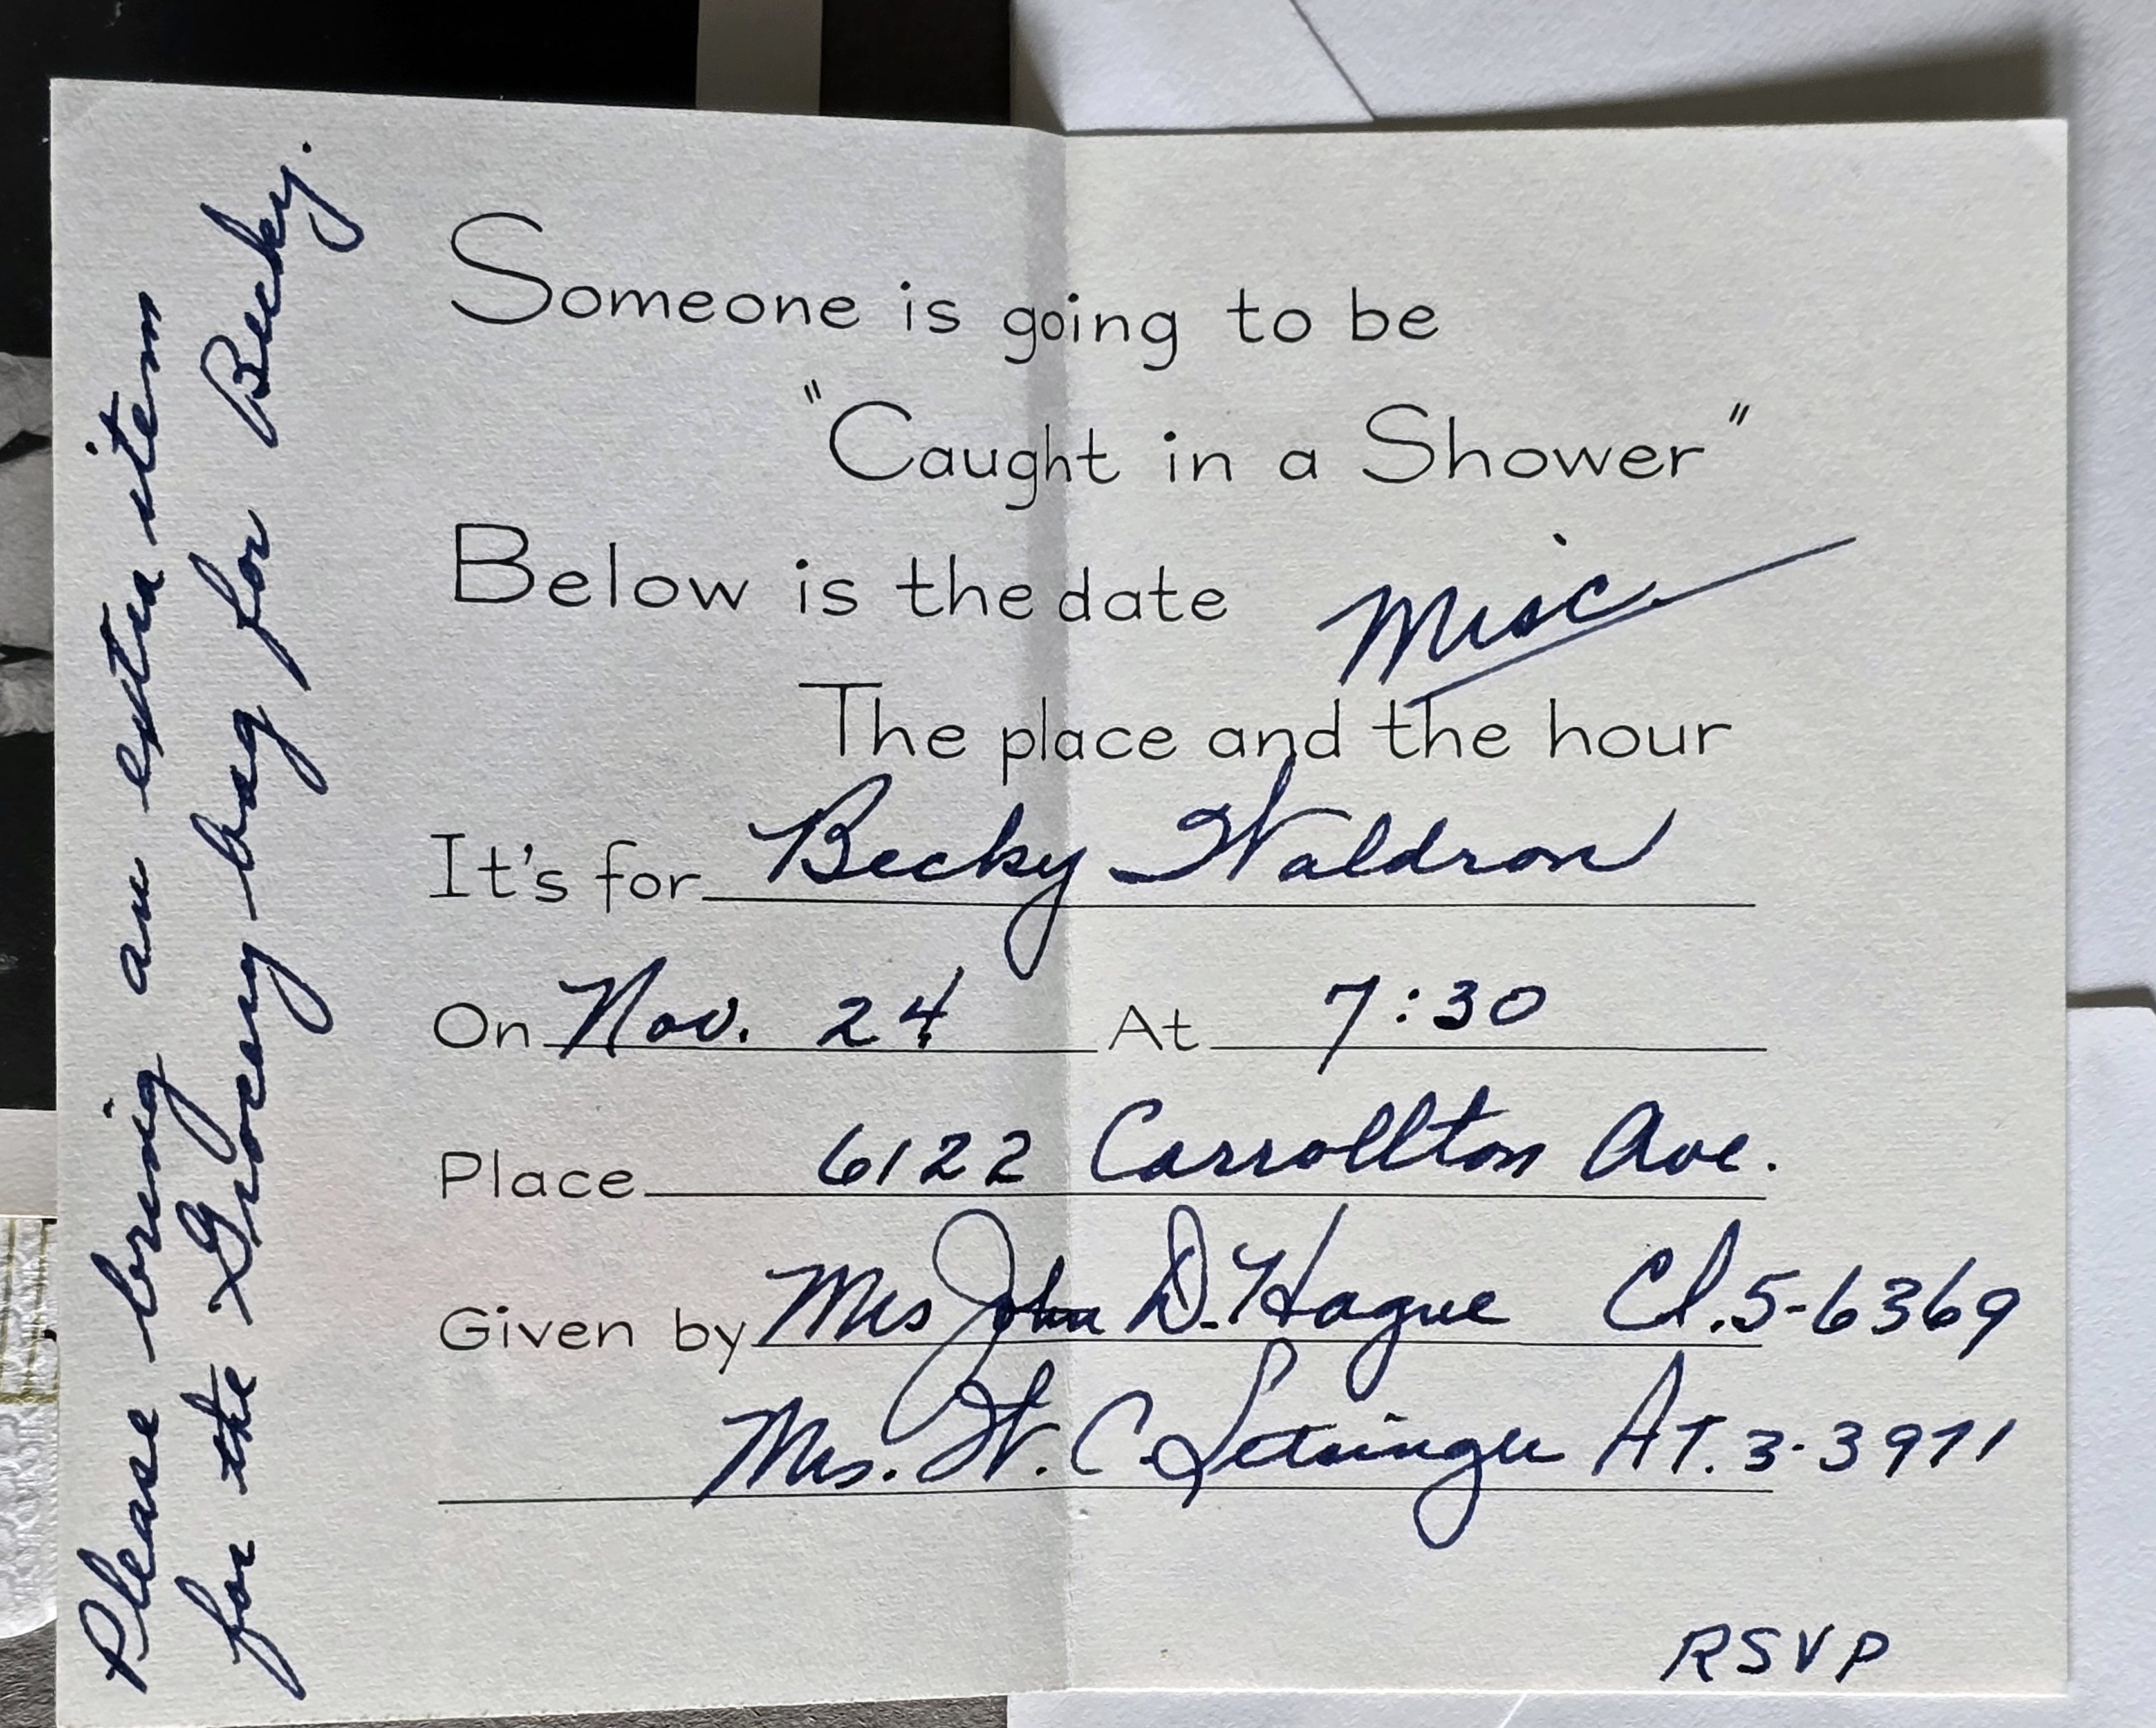 Someone is going to be
"Caught in a Shower"
Below is the date
Misc.
The place and the hour
It's for Becky Waldron
On Nov. 24 At 7:30
Place 6122 Carrollton Ave.
Given by Mrs John D. Hague Cl.5-6369
Mrs. W. C. Setsinger AT. 3-3971
RSVP
Please bring an extra item
for the Grocery bag for Becky.